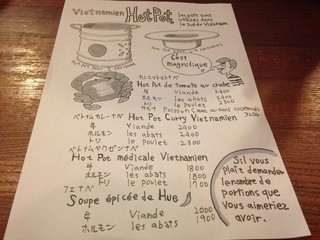 Vietnamien Hot Pot
les pots sont
utilisés dans
le Sud du Vietnam
HOT POT
C'est
magnifique
カニとトマトナベ
Hot Pot de tomate au crabe
牛 Viande 2400
ホルモン les abats 2400
トリ le poulet 2300
Poisson
ベトナムカレーナベ Hot Pot Curry Vietnamien
牛 Viande 2400
ホルモン les abats 2400
トリ le poulet 2300
ベトナムヤクゼンナベ
Hot Pot médicale Vietnamien
牛 Viande 1800
ホルモン les abats 1800
トリ le poulet 1700
フエナベ
Soupe épicée de Hue
牛 Viande 2000
ホルモン les abats 1900
S'il vous
plaît demander
le nombre de
portions que
vous aimeriez
avoir.